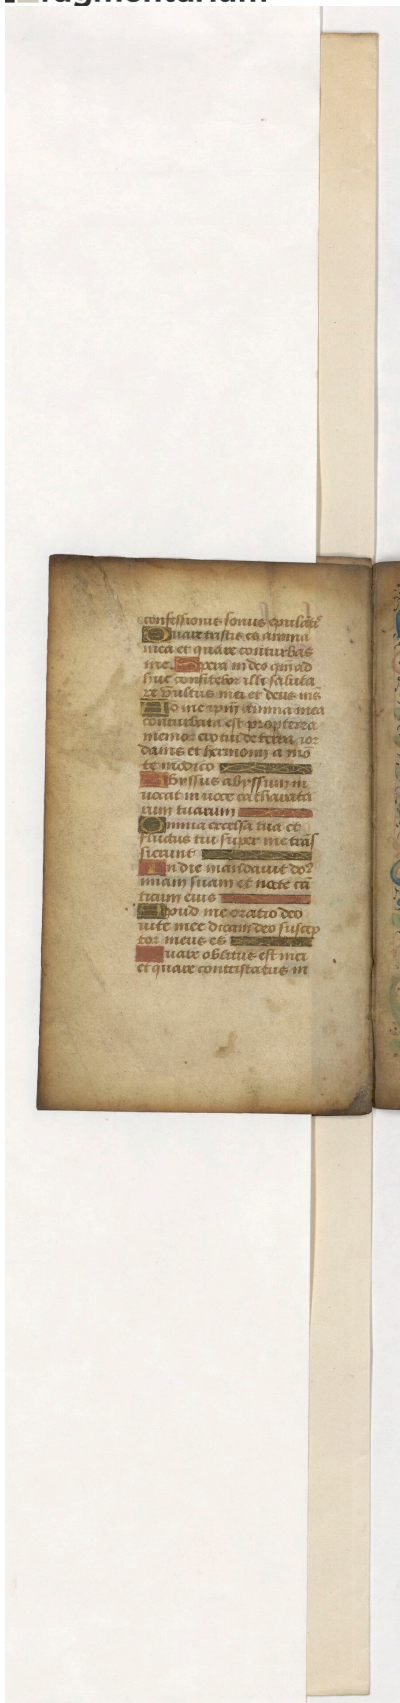 fragmentarium
confessionis sonus epulātꝭ
Quare tristis es anima
mea et quare conturbas
me. Spera in deo qm̄ ad
huc confitebor illi saluta
re vultus mei et deus ms
Ad me ipm̄ anima mea
conturbata est propterea
memor ero tui de terra ior
danis et hermonij a mō
te modico
Abyssus abyssum in
uocat in uoce catharata
rum tuarum
Omnia excelsa tua et
fluctus tui super me trās
sierunt
In die mandauit do
miam suam et nocte cā
ticum eius
Apud me oratio deo
uite mee dicam deo suscep
tor meus es
Quare oblitus est mei
et quare contristatus in